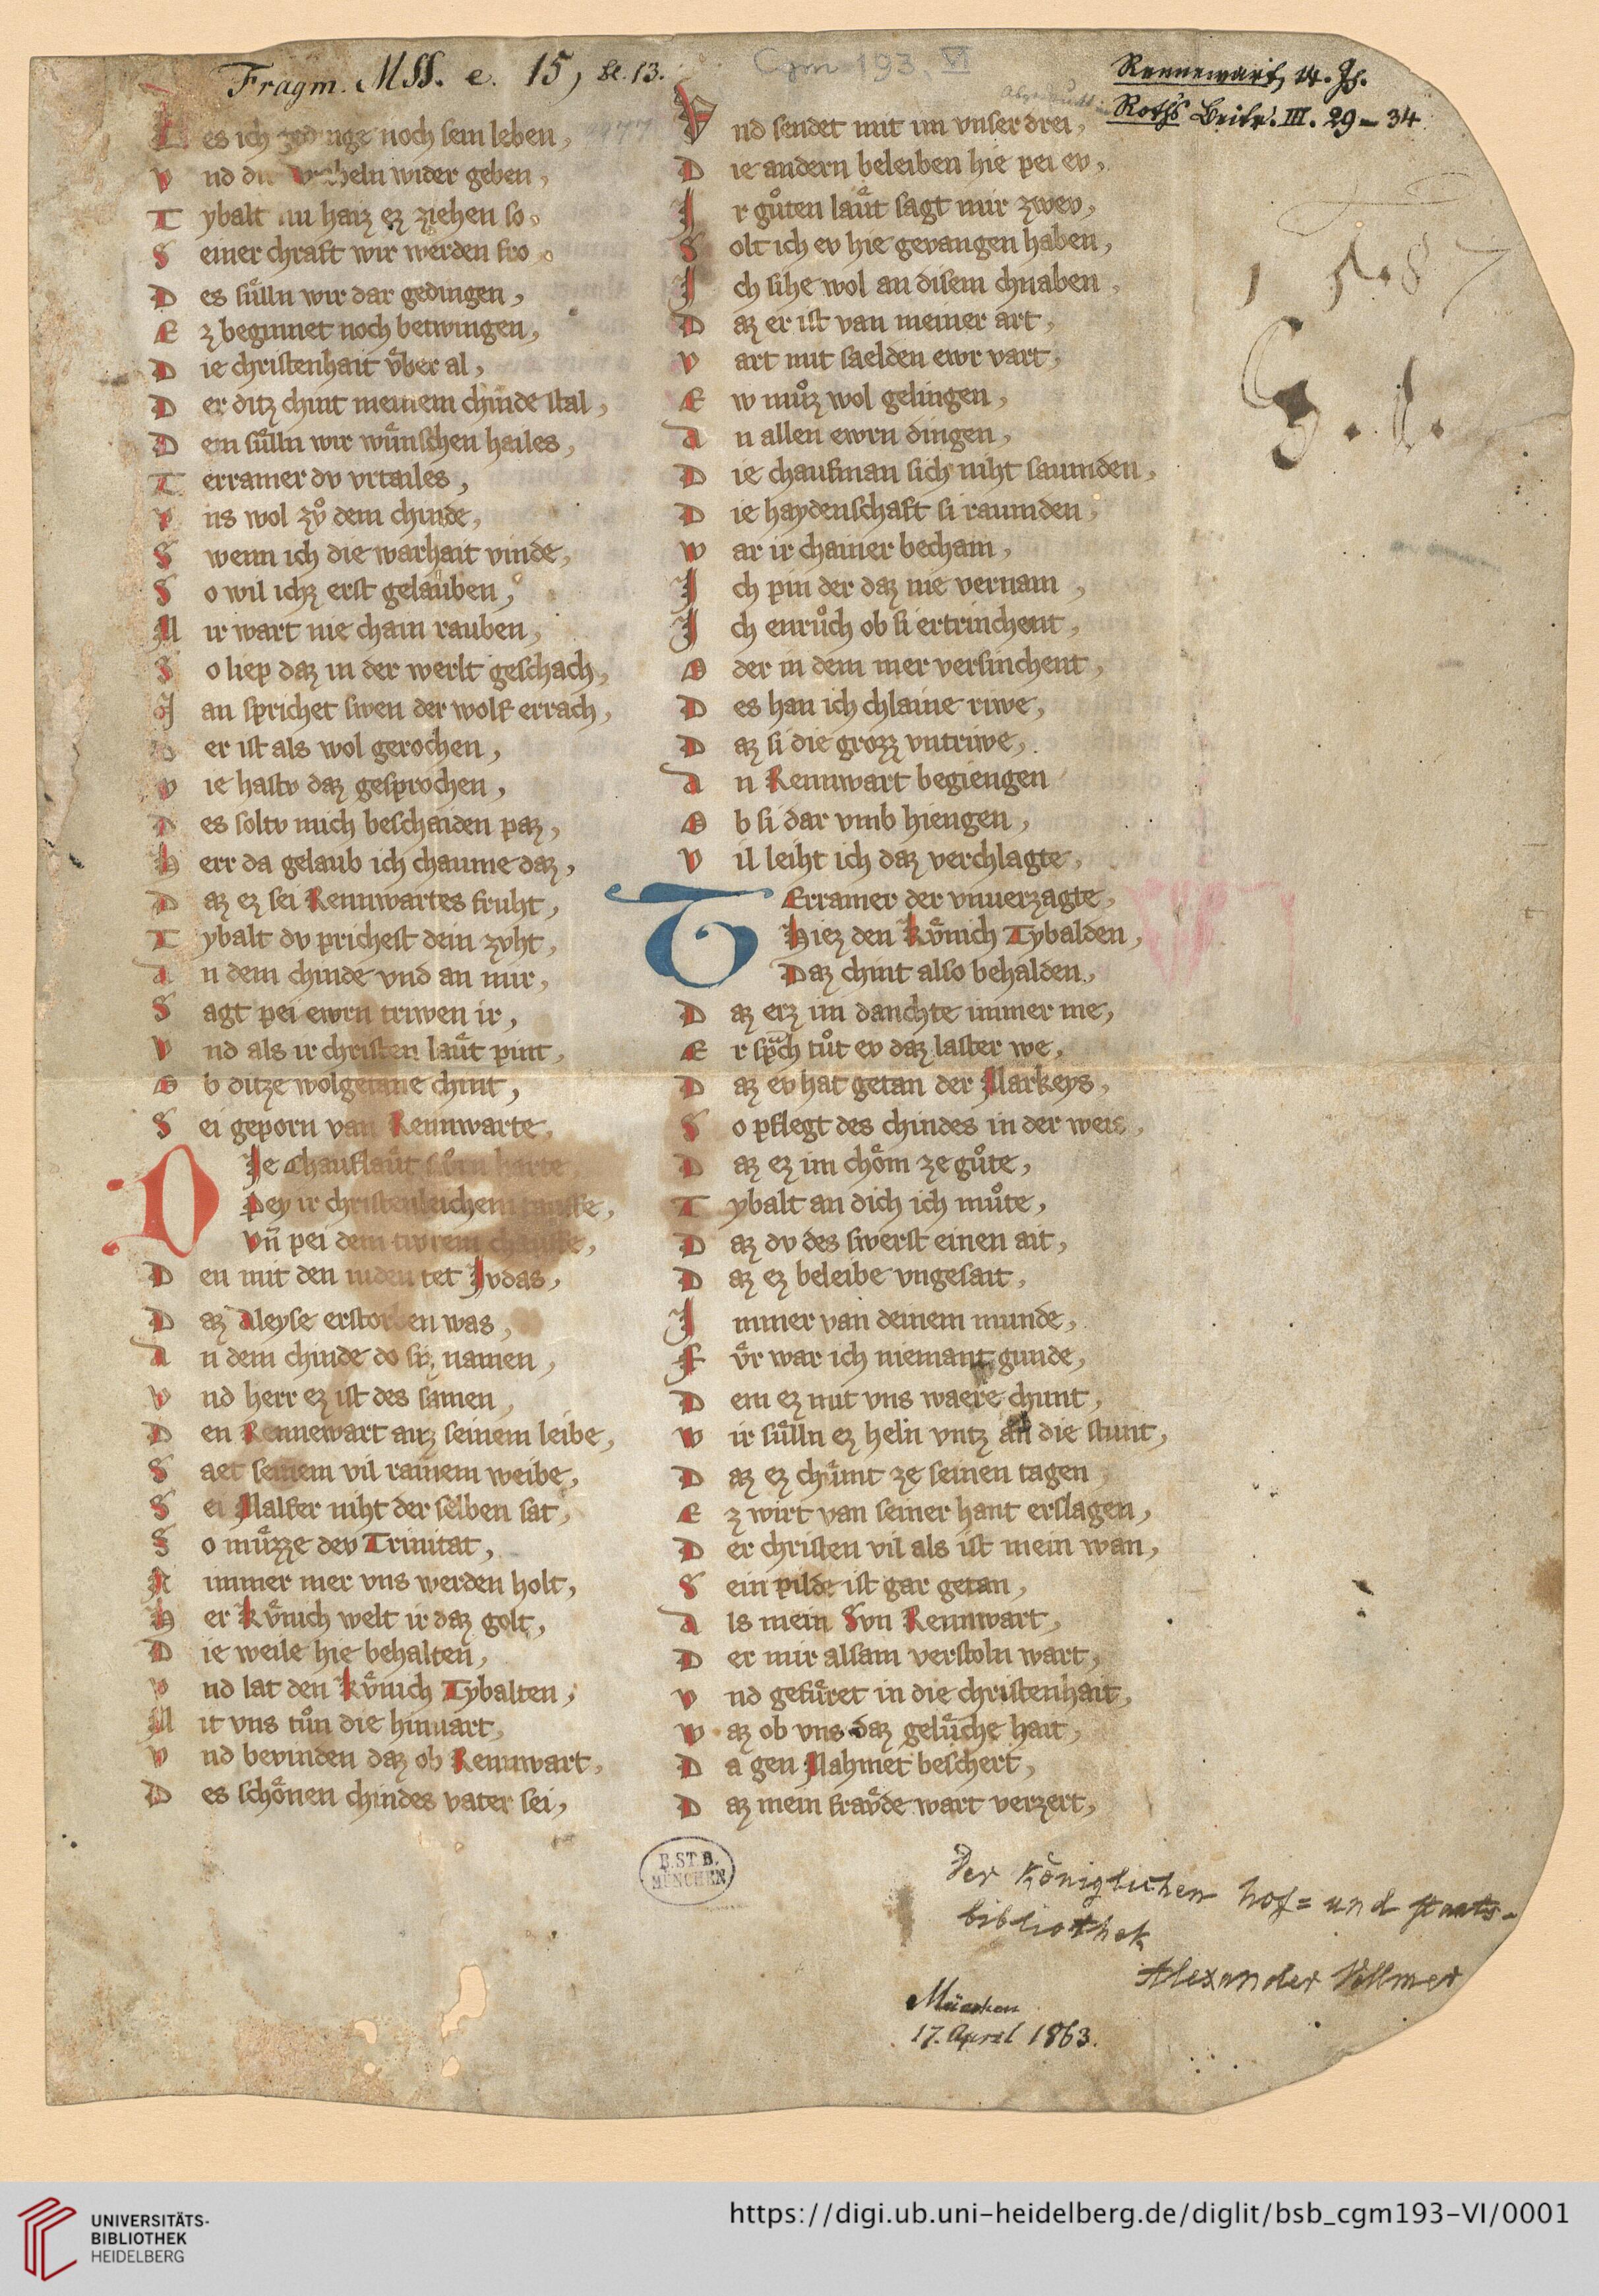 Fragm. Mss. e. 15, Bl. 13.
Cgm 193, VI
Rennewart, 14. Jh.
Roth's Beitr. III. 29–34
Des ich gedinge noch sein leben,
vnd wider geben,
Tybalt nu haiz ez ziehen so.
Seiner chraft wir werden fro.
Des sůlln wir dar gedingen,
Ez beginnet noch betwingen,
Die christenhait vͤber al,
Der ditz chint meinem chinde stal,
Dem sůlln wir wuͤnschen hailes,
Terramer dv vrtailes,
vns wol zvͦ dem chinde,
Swenn ich die warhait vinde,
So wil ichz erst gelauben,
Mir wart nie chain rauben,
So liep daz in der werlt geschach,
Man sprichet swen der wolf errach,
Der ist als wol gerochen,
Wie hastv daz gesprochen,
Des soltv mich beschaiden paz,
Herr da gelaub ich chaume daz,
Daz ez sei Rennwartes fruht,
Tybalt dv prichest dein zvht,
An dem chinde vnd an mir,
Sagt pei ewrn triwen ir,
Vnd als ir christen laͤut pint,
Ob ditze wolgetane chint,
Sei geporn van Rennwarte,
DJe chauflaͤut swuͦrn harte
Pey ir christenleichem tauffe,
Vn̄ pei dem tiwrem chauffe,
Den mit den iuden tet Jvdas,
Daz Aleyse erstorben was,
An dem chinde do siz namen,
Vnd herr ez ist des samen
Den Rennewart auz seinem leibe,
Saet seinem vil rainem weibe,
Sei Malfer niht der selben sat,
So muͤzze dev Trinitat,
Nimmer mer vns werden holt,
Her Kvͤnich welt ir daz golt,
Die weile hie behalten,
vnd lat den Kvͤnich Tybalten,
Mit vns tuͦn die hinuart,
vnd bevinden daz ob Rennwart,
Des schoͤnen chindes vater sei,
Vnd sendet mit im vnser drei,
Die andern beleiben hie pei ev,
Jr guͦten laͤut sagt mir zwev,
Solt ich ev hie gevangen haben,
Jch sihe wol an disem chnaben
Daz er ist van meiner art,
vart mit saelden ewr vart,
Ew muͦz wol gelingen,
An allen ewrn dingen,
Die chaufman sich niht saumden,
Die haydenschaft si raumden
war ir chainer becham,
Jch pin der daz nie vernam,
Jch enruͦch ob si ertrinchent,
Oder in dem mer versinchent,
Des han ich chlaine riwe,
Daz si die grozz vntriwe,
An Rennwart begiengen
Ob si dar vmb hiengen,
Vil leiht ich daz verchlagte,
TErramer der vnuerzagte,
Hiez den Kvͤnich Tybalden,
Daz chint also behalden,
Daz erz im danchte immer me,
Er sprach tuͦt ev daz laster we,
Daz ev hat getan der Markeys,
So pflegt des chindes in der weis,
Daz ez im choͤm ze guͦte,
Tybalt an dich ich muͦte,
Daz dv des swerst einen ait,
Daz ez beleibe vngesait,
Jmmer van deinem munde,
Fvͤr war ich niemant gunde,
Dem ez mit vns waere chunt,
wir suͤlln ez heln vntz an die stunt,
Daz ez chuͤmt ze seinen tagen
Ez wirt van seiner hant erslagen,
Der christen vil als ist mein wan,
Sein pilde ist gar getan,
Als mein Svn Rennwart,
Der mir alsam verstoln wart,
vnd gefuͤret in die christenhait,
waz ob vns daz geluͤche hait,
Da gen Mahmet beschert,
Daz mein fraͤvde wart verzert,
B.ST.B.
MÜNCHEN
Der Königlichen hof= und staats-
bibliothek
Alexander Vollmer
München
17. April 1863.
UNIVERSITÄTS-
BIBLIOTHEK
HEIDELBERG
https://digi.ub.uni-heidelberg.de/diglit/bsb_cgm193-VI/0001